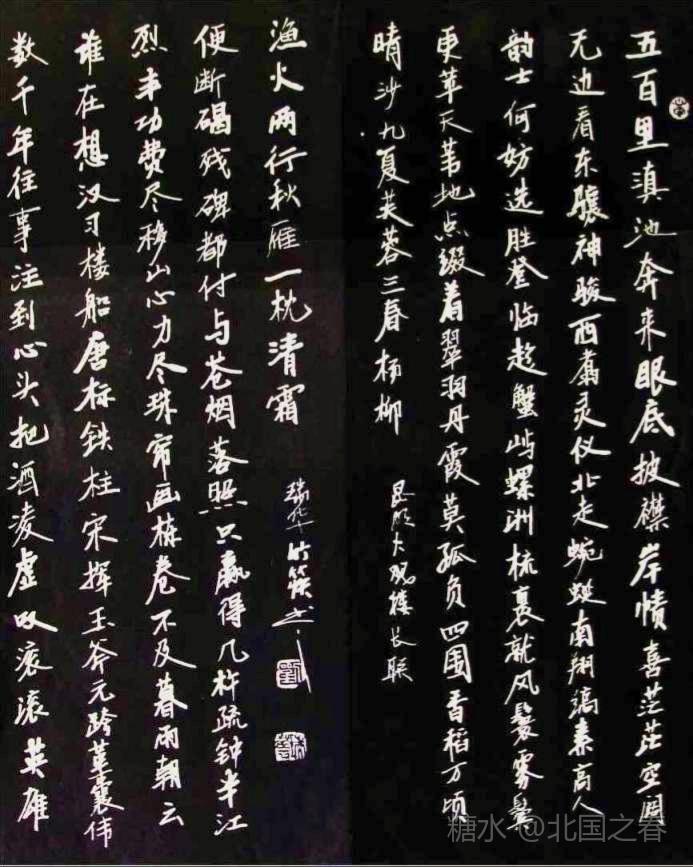 五百里滇池奔来眼底披襟岸帻喜茫茫空阔
无边看东骧神骏西翥灵仪北走蜿蜒南翔缟素高人
韵士何妨选胜登临趁蟹屿螺洲梳裹就风鬟雾鬓
更苹天苇地点缀着翠羽丹霞莫孤负四围香稻万顷
晴沙九夏芙蓉三春杨柳
昆明大观楼长联
数千年往事注到心头把酒凌虚叹滚滚英雄
谁在想汉习楼船唐标铁柱宋挥玉斧元跨革囊伟
烈丰功费尽移山心力尽珠帘画栋卷不及暮雨朝云
便断碣残碑都付与苍烟落照只赢得几杵疏钟半江
渔火两行秋雁一枕清霜
瑞华竹筷书
糖水 @北国之春